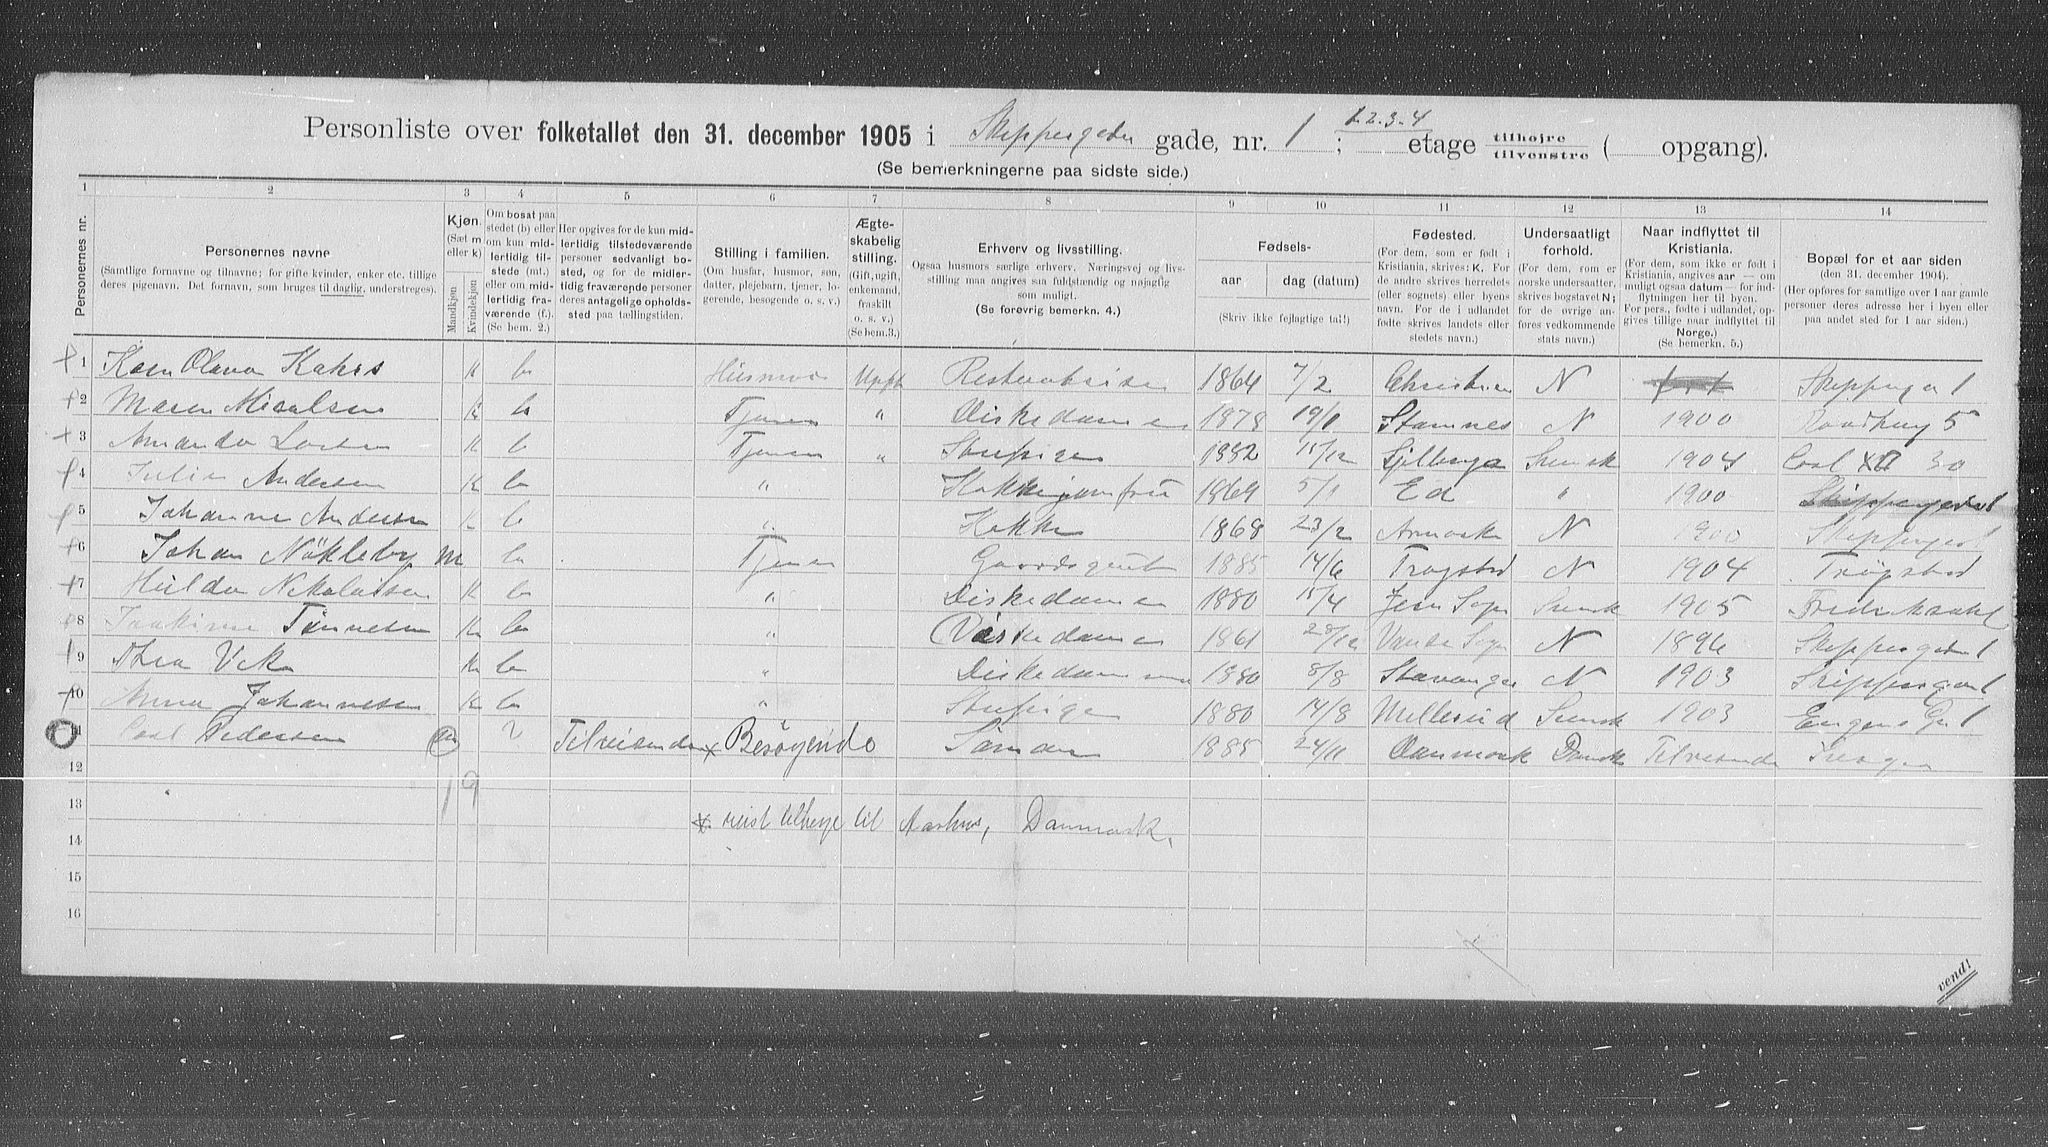 Personliste over folketallet den 31. december 1905 i Skippergaden gade, nr. 1 ; 1.2.3.4 etage tilhøjre tilvenstre ( opgang).
(Se bemerkningerne paa sidste side.)
1 2 3 4 5 6 7 8 9 10 11 12 13 14
Personernes nr.
Personernes navne
(Samtlige fornavne og tilnavne; for gifte kvinder, enker etc. tillige deres pigenavn. Det fornavn, som bruges til daglig, understreges).
Kjøn.
(Sæt m eller k)
Mandkjøn
Kvindekjøn
Om bosat paa stedet (b) eller om kun midlertidig tilstede (mt.) eller om midlertidig fraværende (f.). (Se bem. 2.)
Her opgives for de kun midlertidig tilstedeværende personer sedvanligt bosted, og for de midlertidig fraværende personer deres antagelige opholdssted paa tællingstiden.
Stilling i familien.
(Om husfar, husmor, søn, datter, plejebarn, tjener, logerende, besøgende o. s. v.)
Ægteskabelig stilling.
(Gift, ugift, enkemand, fraskilt o. s. v.)
(Se bem.3.)
Erhverv og livsstilling.
Ogsaa husmors særlige erhverv. Næringsvej og livsstilling maa angives saa fuldstændig og nøjagtig som muligt.
(Se forøvrig bemerkn. 4.)
Fødsels-
aar
dag (datum)
(Skriv ikke fejlagtige tal!)
Fødested.
(For dem, som er født i Kristiania, skrives: K. For de andre skrives herredets (eller sognets) eller byens navn. For de i udlandet fødte skrives landets eller stedets navn.)
Undersaatligt forhold.
(For dem, som er norske undersaatter, skrives bogstavet N; for de øvrige anføres vedkommende stats navn.)
Naar indflyttet til Kristiania.
(For dem, som ikke er født i Kristiania, angives aar — om muligt ogsaa datum — for indflytningen her til byen. For pers., fødte i udlandet, opgives tillige naar indflyttet til Norge.)
(Se bemerkn. 5.)
Bopæl for et aar siden
(den 31. december 1904).
(Her opføres for samtlige over 1 aar gamle personer deres adresse her i byen eller paa andet sted for 1 aar siden.)
1 Karen Olava Kahrs K b Husmor Restauratrise 1864 7/2 N Skipperga 1
2 Maren Micalsen K b Tjener " Diskedame 1878 19/1 Stamnes N 1900 Raadhusg 5
3 Amanda Larsen K b Tjener " Stuepige 1882 15/12 Svensk 1904 Carl XII 30
4 Julie Andersen K b " Kokkejomfru 1864 5/1 Ed " 1900 Skippergaden 1
5 Johanne Andersen K b " Kokke 1868 23/2 Aremark N 1900 Skipperga 1
6 Johan Nökleby m b Tjener Gaardsgut 1885 14/6 Trøgstad N 1904 Trøgstad
7 Hulda Nikolaisen K b " Diskedame 1880 15/4 Svensk 1905 Fredrikshald
8 Joakime Tönnesen K b " Diskedame 1861 28/12 N 1896 Skippergaden 1
9 Thea Vik K b " Diskedame 1880 8/8 Stavanger N 1903 Skippergad 1
10 Anna Johannesen K b " Stuepige 1880 14/8 Svensk 1903
11 Carl Pedersen m Tilreisende * Besøgende Sömand 1885 24/11 Danmark Dansk Tilreisende
12
1 9
13
* reist tilbage til Aarhus, Danmark.
14
15
16
vend!